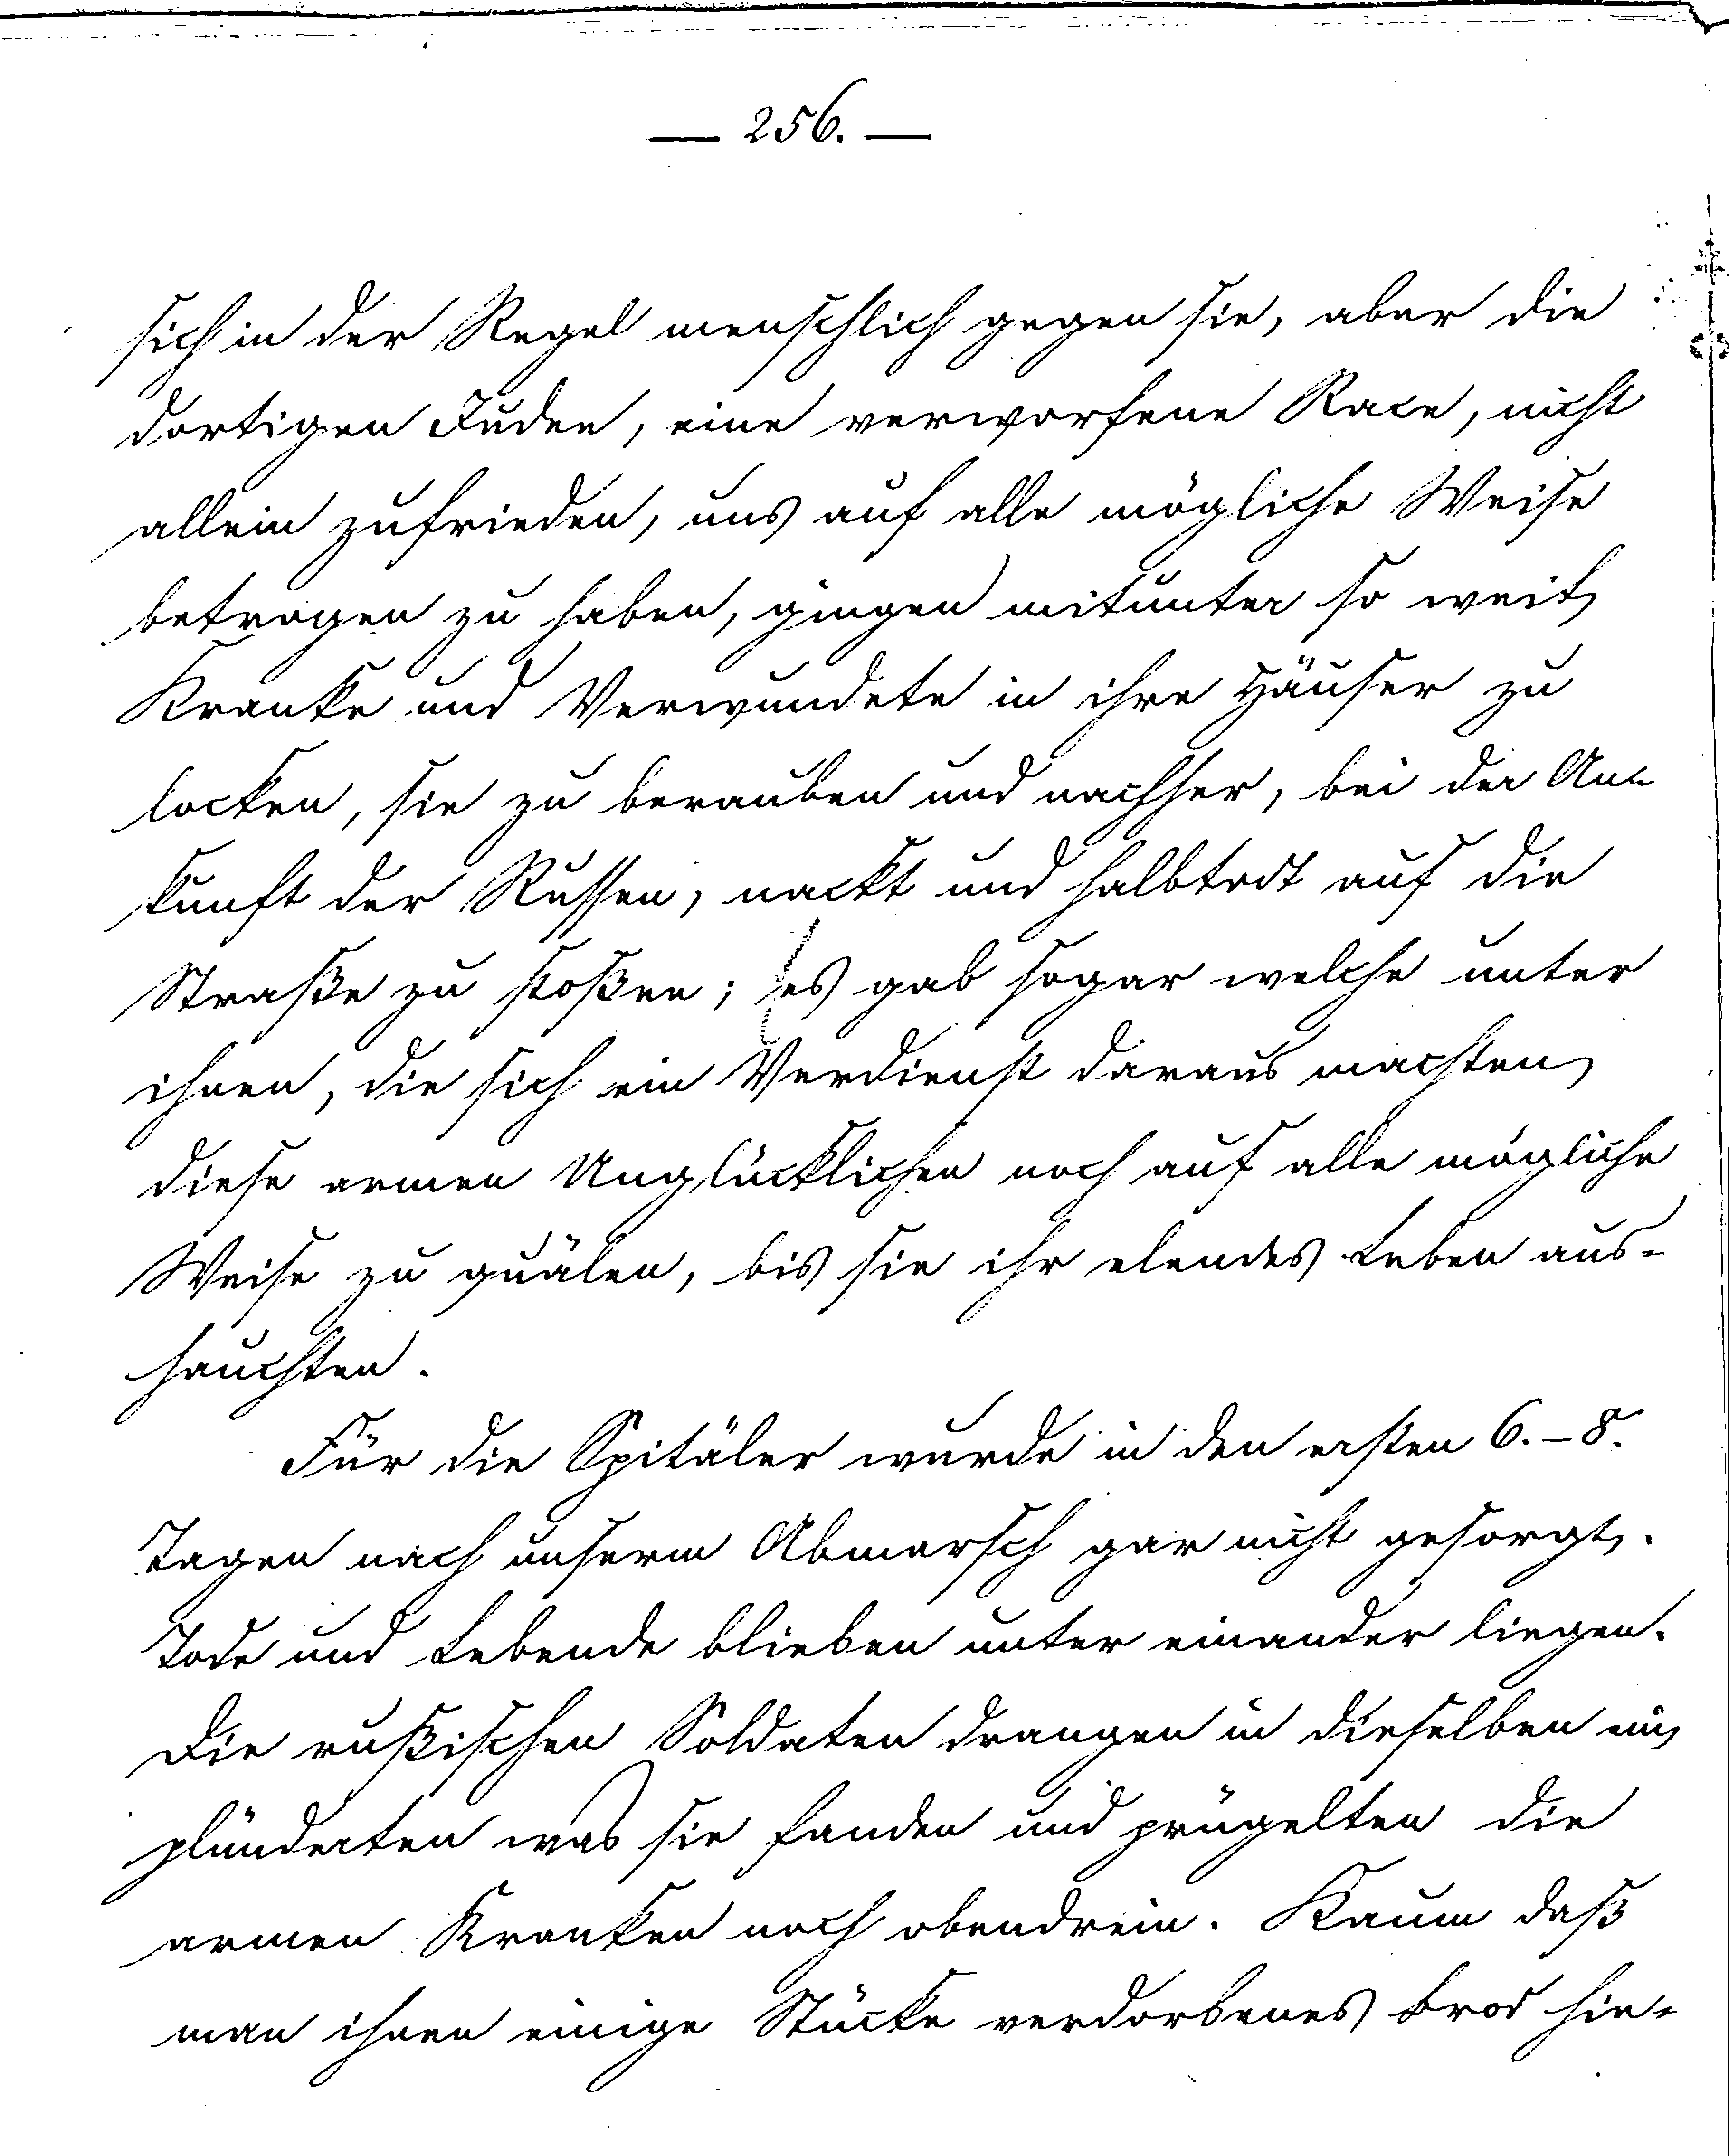 — 256. —
sich in der Regel menschlich gegen sie, aber die
dortigen Juden, eine verworfene Race, nicht
allein zufrieden, uns auf alle mögliche Weise
betrogen zu haben, gingen mitunter so weit,
Kranke und Verwundete in ihre Häuser zu
locken, sie zu berauben und nachher, bei der An-
kunft der Russen, nackt und halbtodt auf die
Straße zu stoßen; es gab sogar welche unter
ihnen, die sich ein Verdienst daraus machten,
diese armen Unglücklichen noch auf alle mögliche
Weise zu quälen, bis sie ihr elendes Leben aus-
hauchten.
Für die Spitäler wurde in den ersten 6.–8.
Tagen nach unserm Abmarsch gar nicht gesorgt.
Tode und Lebende blieben unter einander liegen.
Die rußischen Soldaten drangen in dieselben ein,
plünderten was sie fanden und prügelten die
armen Kranken noch obendrein. Kaum daß
man ihnen einige Stücke verdorbenes Brod hin-